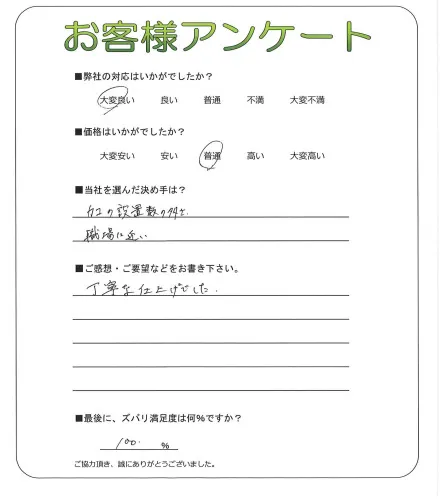 お客様アンケート
■弊社の対応はいかがでしたか?
大変良い 良い 普通 不満 大変不満
■価格はいかがでしたか?
大変安い 安い 普通 高い 大変高い
■当社を選んだ決め手は?
の設置数の多さ.
職場に近い
■ご感想・ご要望などをお書き下さい。
丁寧な仕上げでした.
■最後に、ズバリ満足度は何%ですか?
100. %
ご協力頂き、誠にありがとうございました。